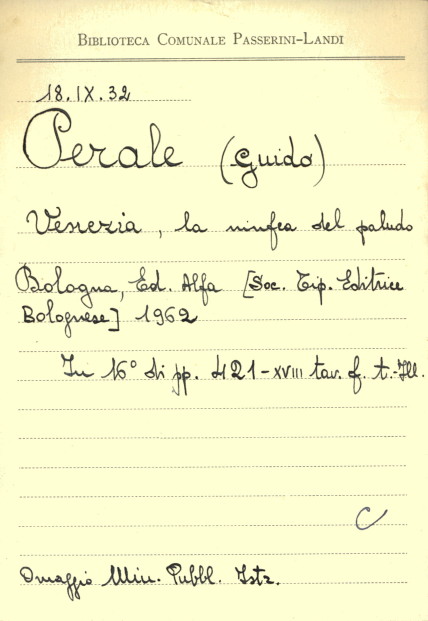 BIBLIOTECA COMUNALE PASSERINI-LANDI
18.IX.32
Perale (Guido)
Venezia, la ninfea del paludo
Bologna, Ed. Alfa [Soc. Tip. Editrice
Bolognese] 1962
In 16° di pp. 421-XVIII tav. f. t.-Ill.
C
Omaggio Min. Pubbl. Istr.